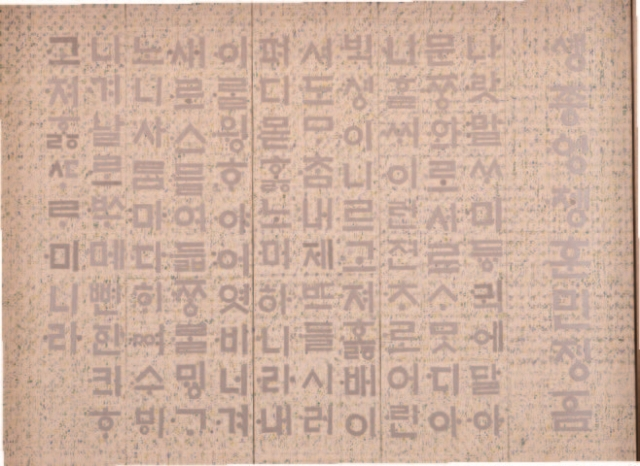 솅종엉졩훈민졍음
나랏말ᄊᆞ미듕귁에달아
문ᄍᆞᆼ와로서르ᄉᆞᄆᆞᆺ디아
니ᄒᆞᆯᄊᆡ이런젼ᄎᆞ로어린
빅셩이니르고져호ᇙ배이
셔도ᄆᆞᄎᆞᆷ내제ᄠᅳ들시러
펴디몯ᄒᆞᇙ노미하니라내
이ᄅᆞᆯ윙ᄒᆞ야어엿비너겨
새로스믈여듧ᄍᆞᆼᄅᆞᆯᄆᆡᇰᄀᆞ
노니사ᄅᆞᆷ마다ᄒᆡᅇᅧ수ᄫᅵ
니겨날로ᄡᅮ메뼌한킈ᄒᆞ
고져ᄒᆞᇙᄯᆞᄅᆞ미니라